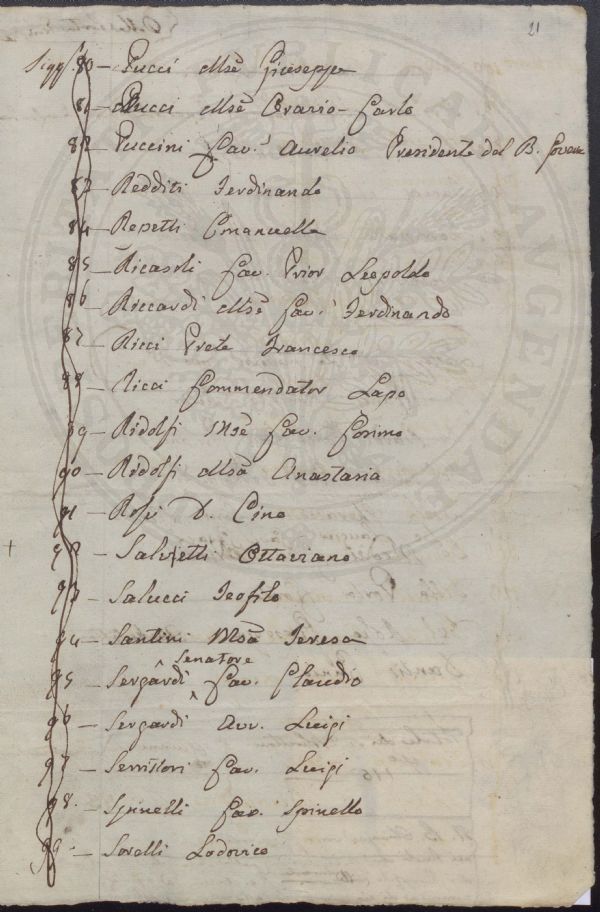 21
Sigg.ri 80 — Pucci Mse Giuseppe
81 — Pucci Mse Orazio-Carlo
82 — Puccini Cav.r Aurelio Presidente del B. Gover
83 — Redditi Ferdinando
84 — Repetti Emanuelle
85 — Ricasoli Cav. Prior Leopoldo
86 — Riccardi Mse Cav.r Ferdinando
87 — Ricci Prete Francesco
88 — Ricci Commendator Lapo
89 — Ridolfi Mse Cav. Cosimo
90 — Ridolfi Msa Anastasia
91 — Rosi D. Cino
+ 92 — Salvetti Ottaviano
93 — Salucci Teofilo
94 — Santini Msa Teresa
95 — Sergardi ^Senatore Cav. Claudio
96 — Sergardi Avv. Luigi
97 — Serristori Cav. Luigi
98. — Spinelli Cav. Spinello
99. — Sorelli Lodovico